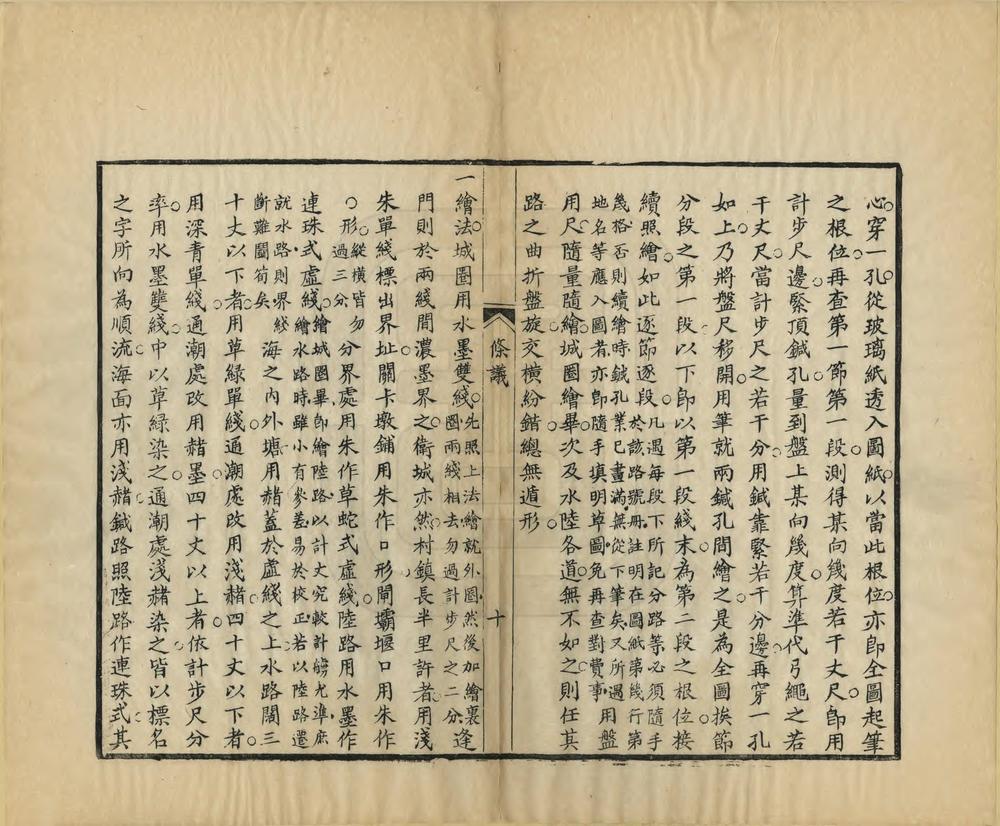 心穿一孔從玻璃紙透入圖紙以當此根位亦即全圖起筆
之根位再查第一節第一段測得某向幾度若干丈尺即用
計步尺邊緊頂鍼孔量到盤上某向幾度算準代弓繩之若
干丈尺當計步尺之若干分用鍼靠緊若干分邊再穿一孔
如上乃將盤尺移開用筆就兩鍼孔間繪之是為全圖挨節
分段之第一段以下即以第一段綫末為第二段之根位接
續照繪如此逐節逐段凡遇每段下所記分路等必須隨手
於該路號冊註明在圖紙第幾行第
幾格否則續繪時鍼孔業已畫滿無從下筆矣又所遇
地名等應入圖者亦即隨手填明草圖免再查對費事用盤
用尺隨量隨繪城圈繪畢次及水陸各道無不如之則任其
路之曲折盤旋交橫紛錯總無遁形
條議
十
一繪法城圈用水墨雙綫先照上法繪就外圈然後加繪裏
圈兩綫相去勿過計步尺之二分逢
門則於兩綫間濃墨界之衛城亦然村鎮長半里許者用淺
朱單綫標出界址關卡墩鋪用朱作口形閘壩堰口用朱作
○形縱橫皆勿
過三分分界處用朱作草蛇式虛綫陸路用水墨作
連珠式虛綫繪城圈畢即繪陸路以計丈究較計觕尤準庶
繪水路時雖小有參差易於校正若以陸路遷
就水路則界綫
斷難鬭筍矣海之內外塘用赭蓋於虛綫之上水路闊三
十丈以下者用草綠單綫通潮處改用淺赭四十丈以下者
用深青單綫通潮處改用赭墨四十丈以上者依計步尺分
率用水墨雙綫中以草綠染之通潮處淺赭染之皆以標名
之字所向為順流海面亦用淺赭鍼路照陸路作連珠式其